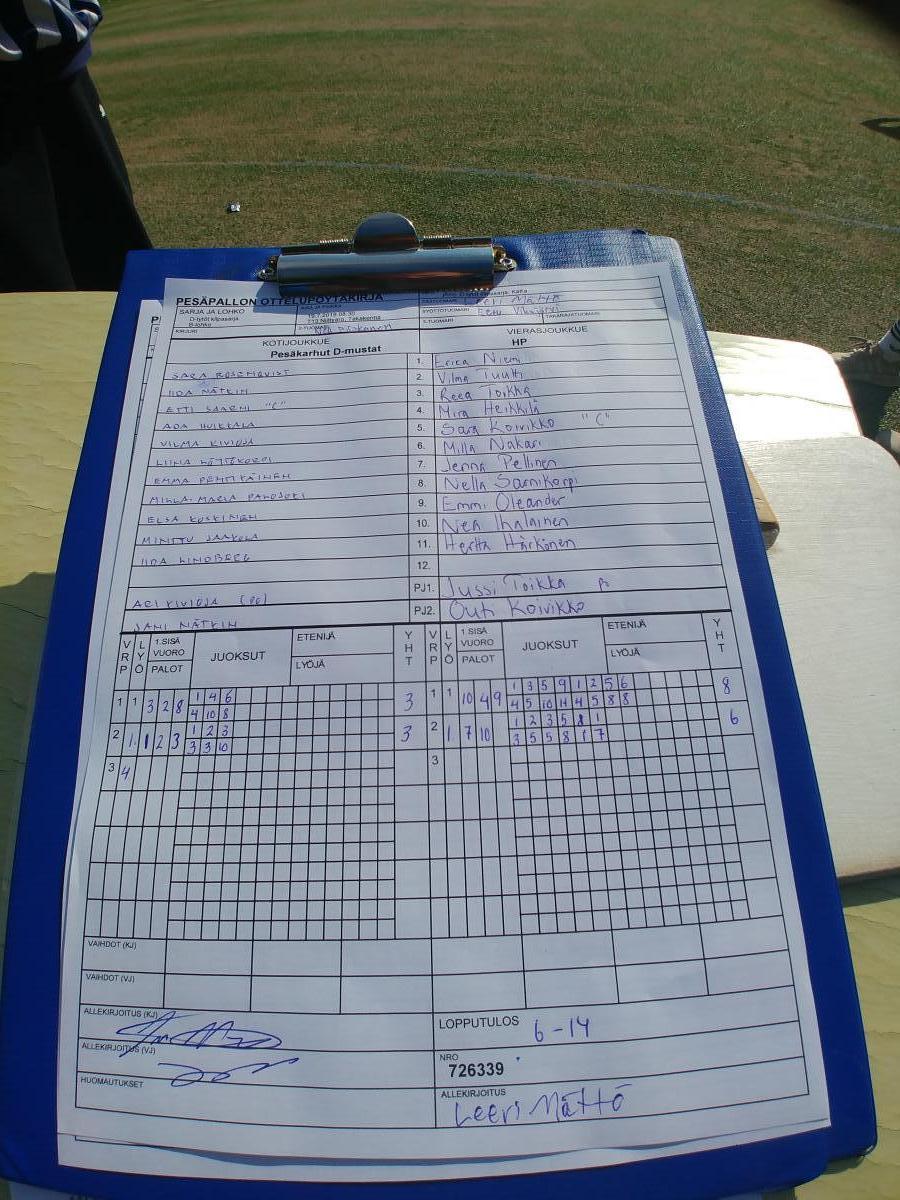 PESÄPALLON OTTELUPÖYTÄKIRJA
SARJA JA LOHKO
D-tytöt kilpasarja
B-lohko
KIRJURI
2-TUOMARI
SYÖTTÖTUOMARI
3-TUOMARI
TAKARAJATUOMARI
Leeri Mättö
KOTIJOUKKUE
Pesäkarhut D-mustat
VIERASJOUKKUE
HP
SARA ROSENQVIST
1. Erica Niemi
IIDA NÄTKIN
2. Vilma Tuulti
ETTI SAARNI "C"
3. Reea Toikka
ADA HUIKKALA
4. Mira Heikkilä
VILMA KIVIOJA
5. Sara Koivikko "C"
LIINA
6. Milla Nakari
EMMA PENTTKÄINEN
7. Jenna Pellinen
MILLA-MARIA PANOJOKI
8. Nella Sarnikorpi
ELSA KOSKINEN
9. Emmi Oleander
MINTTU JAAKOLA
10. Nea Ihalainen
IIDA LINDBERG
11. Hertta Härkönen
12.
ARI KIVIOJA (PO)
PJ1. Jussi Toikka
JANI NÄTKIN
PJ2. Outi Koivikko
VRP LYÖ 1.SISÄ VUORO PALOT JUOKSUT ETENIJÄ LYÖJÄ YHT VRP LYÖ 1.SISÄ VUORO PALOT JUOKSUT ETENIJÄ LYÖJÄ YHT
1 1 3 2 8 1 4 6 3 1 1 10 4 9 1 3 5 9 1 2 5 6 8
4 10 8 4 5 10 11 4 5 8 8
2 1 1 2 3 1 2 3 3 2 1 7 10 1 2 3 5 8 1 6
3 3 10 3 5 5 8 1 7
3 4 3
VAIHDOT (KJ)
VAIHDOT (VJ)
ALLEKIRJOITUS (KJ)
LOPPUTULOS 6-14
ALLEKIRJOITUS (VJ)
NRO
726339
HUOMAUTUKSET
ALLEKIRJOITUS
Leeri Mättö